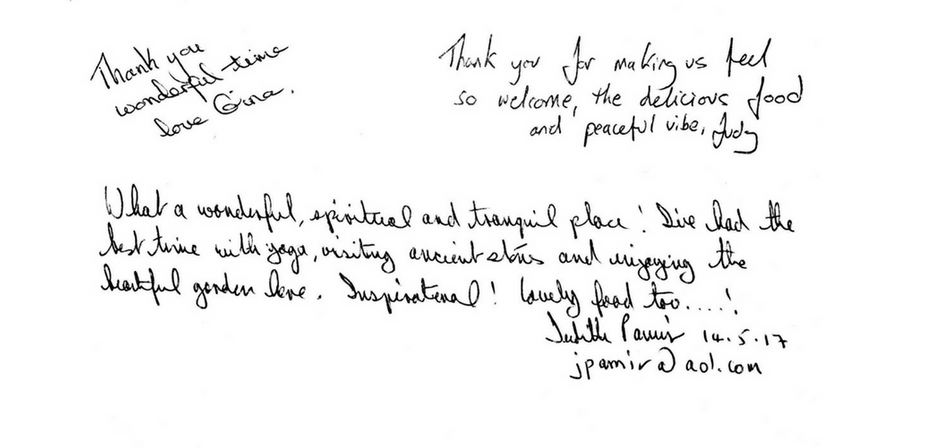 Thank you
wonderful time
love Gina.
Thank you for making us feel
so welcome, the delicious food
and peaceful vibe, Judy
What a wonderful, spiritual and tranquil place! I've had the
best time with yoga, visiting ancient sites and enjoying the
beautiful garden here. Inspirational! Lovely food too....!
Judith Pamir 14.5.17
jpamir@aol.com